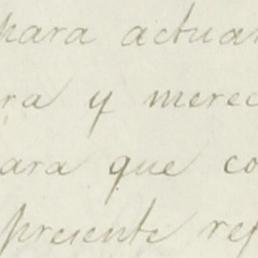 para actuar
ra y merec
ara que co
presente ref